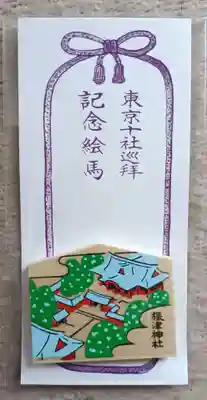 東京十社巡拝
記念絵馬
根津神社